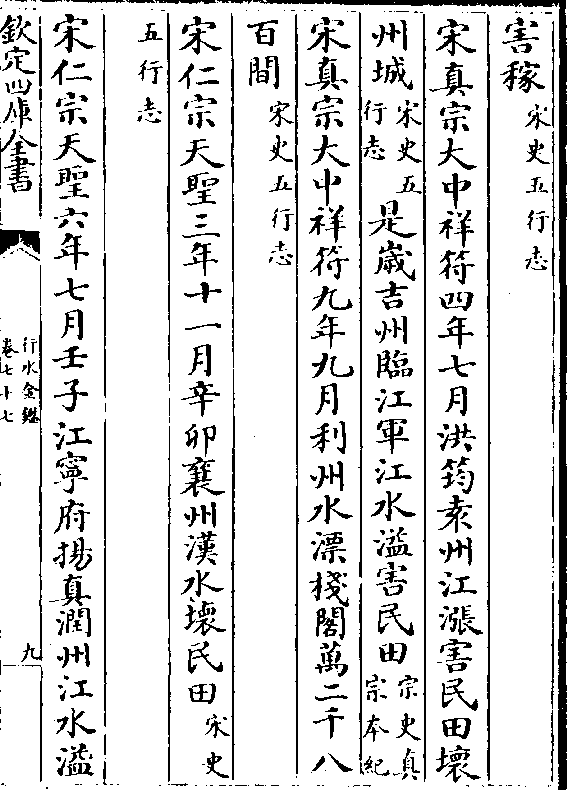 害稼宋史五行志
宋真宗大中祥符四年七月洪筠袁州江漲害民田壞
州城宋史五行志是歳吉州臨江軍江水溢害民田宗史真宗本紀
宋真宗大中祥符九年九月利州水漂棧閣萬二千八
百間宋史五行志
宋仁宗天聖三年十一月辛卯襄州漢水壊民田宋史
五行志
宋仁宗天聖六年七月壬子江寧府揚真潤州江水溢
欽定四庫全書
行水金鑑
卷七十七
九